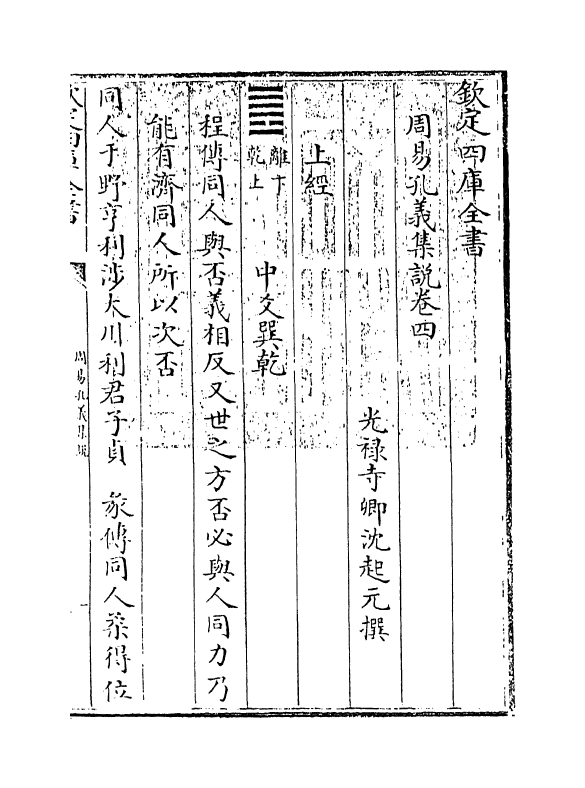 欽定四庫全書
周易孔義集說卷四
光禄寺卿沈起元撰
上經
離下
乾上
中爻巽乾
程傳同人與否義相反又世之方否必與人同力乃
能有濟同人所以次否
同人于野亨利涉大川利君子貞　彖傳同人柔得位
欽定四庫全書
周易孔義集說
一